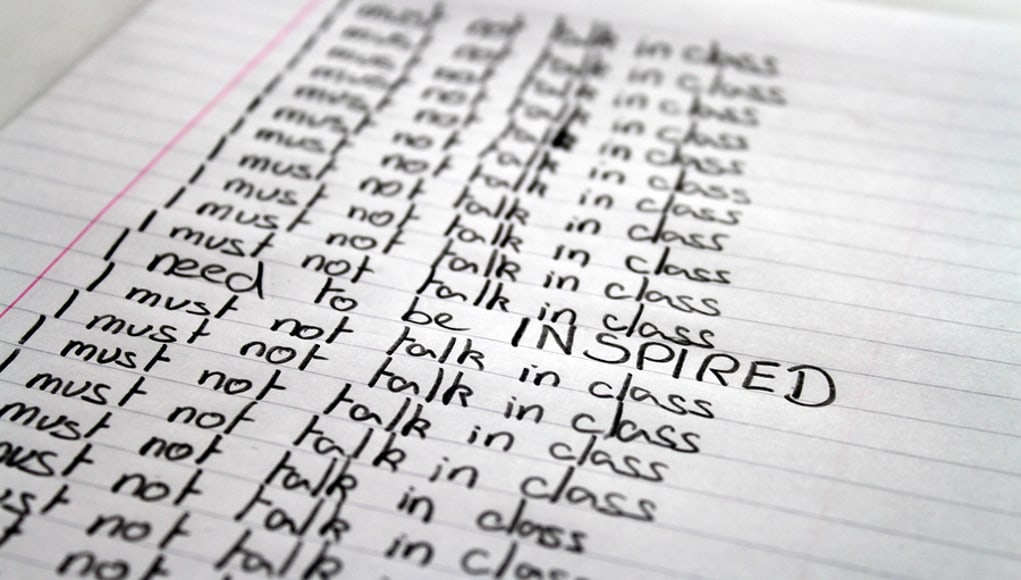 I must not talk in class
I must not talk in class
I must not talk in class
I must not talk in class
I must not talk in class
I must not talk in class
I must not talk in class
I must not talk in class
I must not talk in class
I must not talk in class
I must not talk in class
I need to be INSPIRED
I must not talk in class
I must not talk in class
I must not talk in class
I must not talk in class
must not talk in class
not talk in class
not talk
not